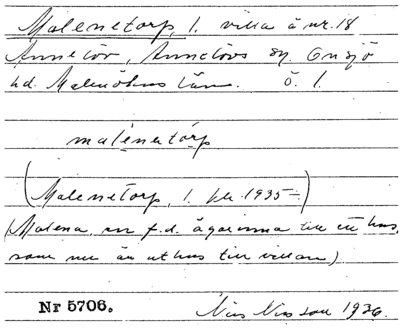 Malenetorp, 1. villa å nr. 18
Annelöv, Annelövs sn. Onsjö
hd. Malmöhus län. ö. l.
malenetårp
(Malenetorp, 1. fek 1935 –)
(Malena, en f.d. ägarinna till ett hus,
som nu är uthus till villan)
Nr 5706. Nils Nilsson 1936.